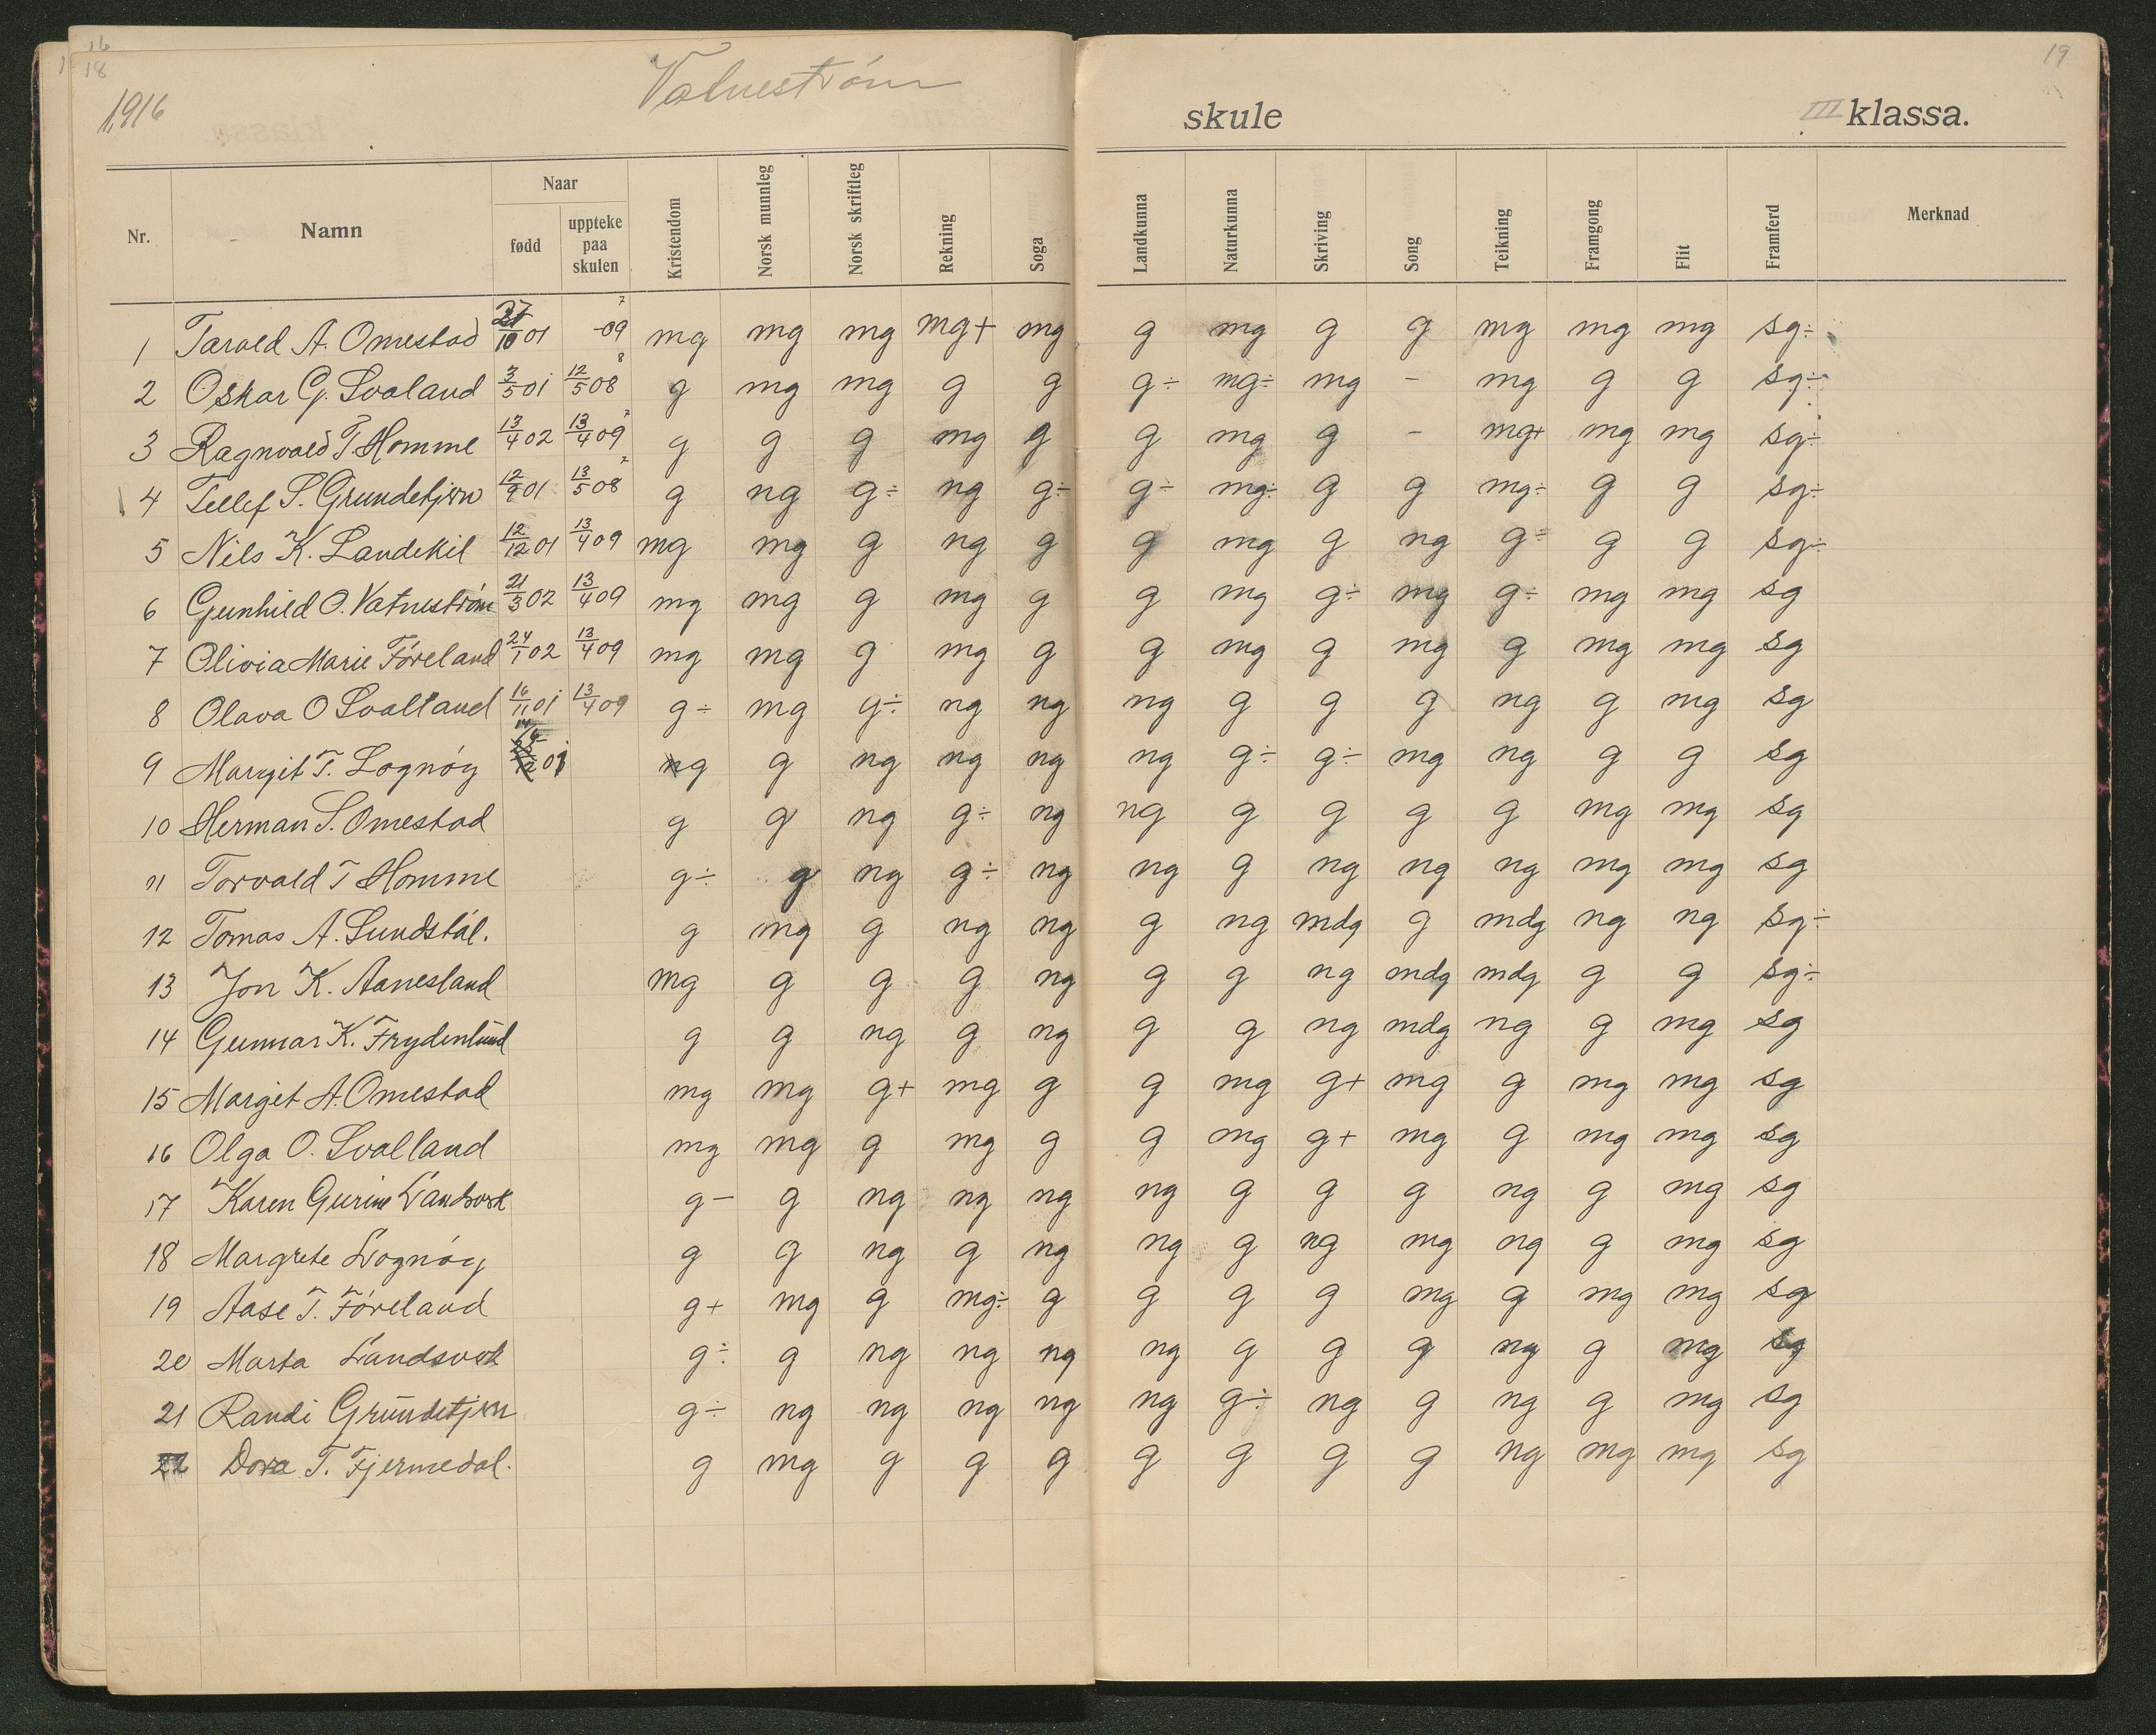 16
18
19
1916
Vatnestrøm
skule
III klassa.
Nr.
Namn
Naar
fødd
uppteke paa skulen
Kristendom
Norsk munnleg
Norsk skriftleg
Rekning
Soga
Landkunna
Naturkunna
Skriving
Song
Teikning
Framgong
Flit
Framferd
Merknad
1 Tarald A. Omestad 10 01 -09 7 mg mg mg mg+ mg g mg g g mg mg mg sg÷
2 Oskar G. Svaland 3/5 01 12/5 08 8 g mg mg g g g÷ mg÷ mg - mg g g sg÷
3 Ragnvald T. Homme 13/4 02 13/4 09 7 g g g mg g g mg g - mg+ mg mg sg÷
4 Tellef S. Grundetjørn 12/9 01 13/5 08 7 g ng g÷ ng g÷ g÷ mg÷ g g mg÷ g g sg÷
5 Nils K. Landekil 12/12 01 13/4 09 mg mg g ng g g mg g ng g÷ g g sg÷
6 Gunhild O. Vatnestrøm 21/3 02 13/4 09 mg mg g mg g g mg g÷ mg g÷ mg mg sg
7 Olivia Marie Føreland 24/1 02 13/4 09 mg mg g mg g g mg g mg g mg mg sg
8 Olava O Svalland 16/11 01 13/4 09 g÷ mg g÷ ng ng ng g g g ng g mg sg
9 Margit T. Lognøy g g ng ng ng ng g÷ g÷ mg ng g g sg
10 Herman S. Omestad g g ng g÷ ng ng g g g g mg mg sg
11 Torvald T Homme g÷ g ng g÷ ng ng g ng ng ng mg mg sg
12 Tomas A. Sundstål. g mg g ng ng g ng mdg g mdg ng ng sg÷
13 Jon K. Aanesland mg g g g ng g g ng mdg mdg g g sg÷
14 Gunnar K. Frydenlund g g ng g ng g g ng mdg ng g mg sg
15 Margit A. Omestad mg mg g+ mg g g mg g+ mg g mg mg sg
16 Olga O. Svalland mg mg g mg g g mg g+ mg g mg mg sg
17 Karen Gurine Landsverk g- g ng ng ng ng g g g ng g mg sg
18 Margrete Lognøy g g ng g ng ng g ng mg ng g mg sg
19 Aase T. Føreland g+ mg g mg÷ g g g g mg g mg mg sg
20 Marta Landsverk g÷ g ng ng ng ng g g g ng g mg sg
21 Randi Grundetjørn g÷ ng ng ng ng ng g÷ ng g ng g mg sg
22 Dora T. Fjermedal. g mg g g g g g g g ng mg mg sg